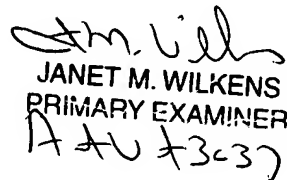 JANET M. WILKENS
PRIMARY EXAMINER
AU 3637